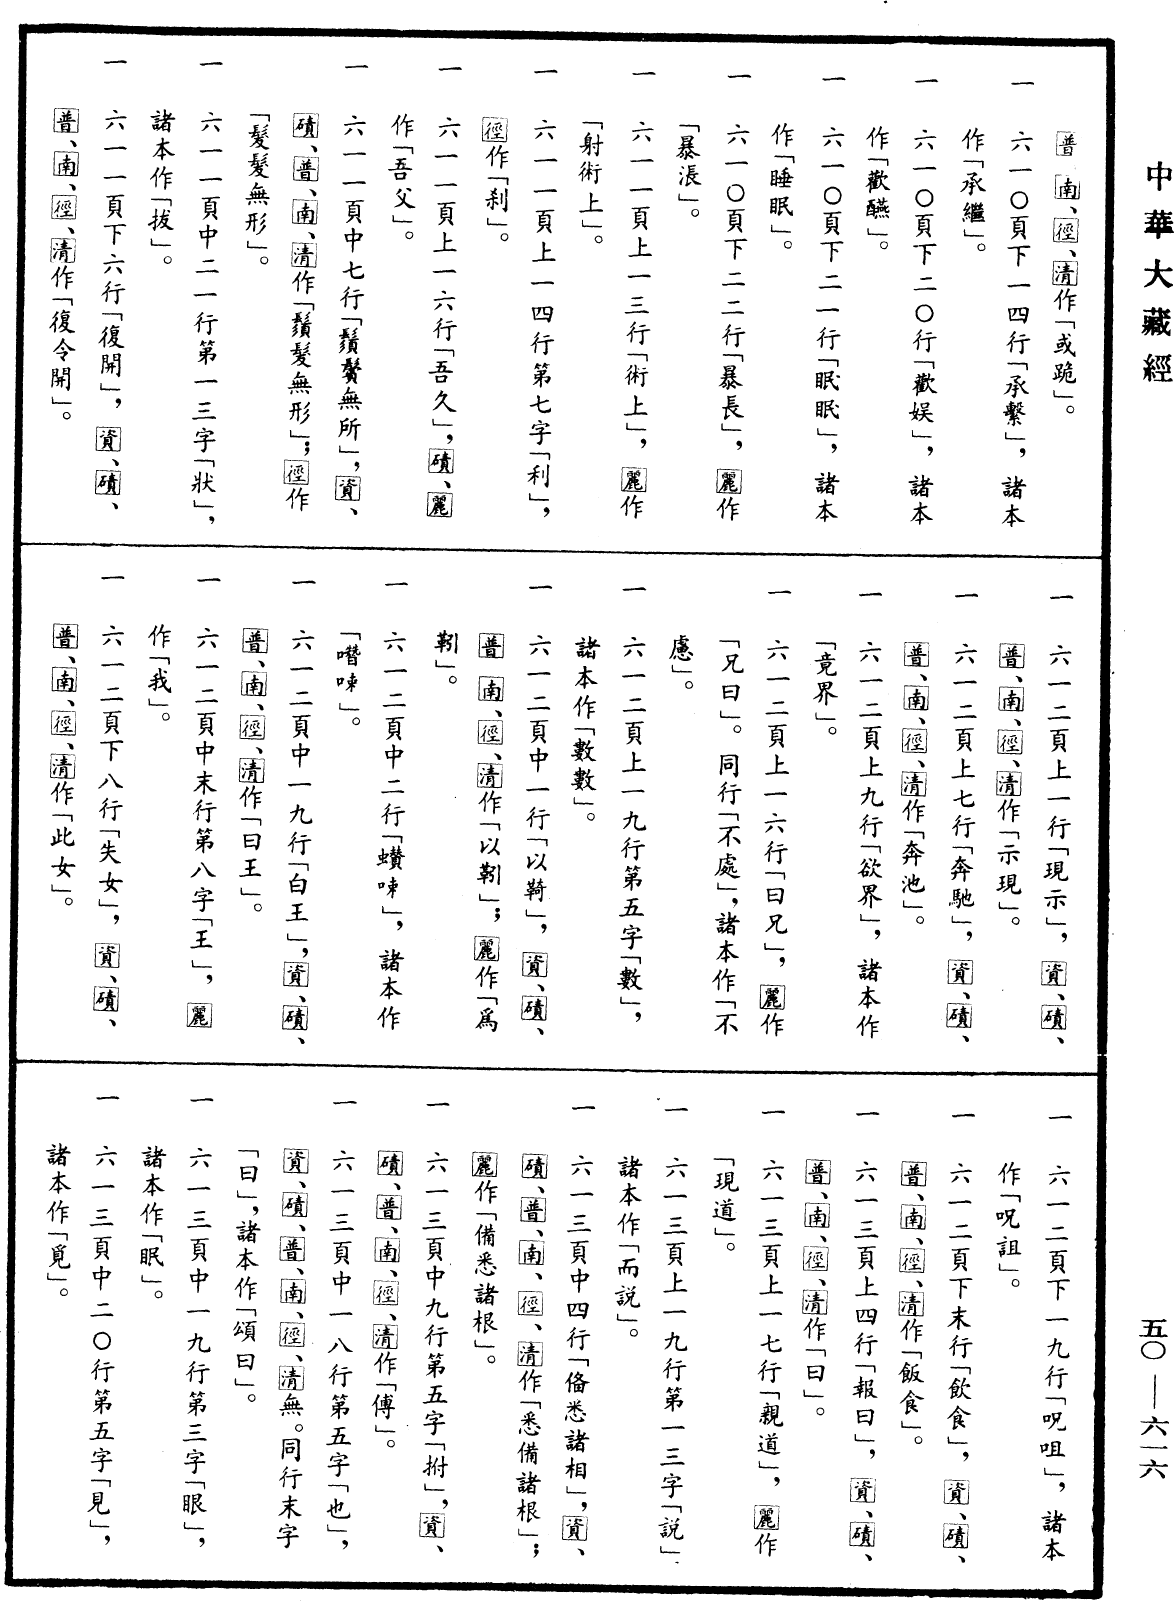 中華大藏經
五〇——六一六
普、南、徑、清作「或跪」。
一 六一〇頁下一四行「承繫」，諸本
作「承繼」。
一 六一〇頁下二〇行「歡娛」，諸本
作「歡醼」。
一 六一〇頁下二一行「眠眠」，諸本
作「睡眠」。
一 六一〇頁下二二行「暴長」，麗作
「暴漲」。
一 六一一頁上一三行「術上」，麗作
「射術上」。
一 六一一頁上一四行第七字「利」，
徑作「刹」。
一 六一一頁上一六行「吾久」，磧、麗
作「吾父」。
一 六一一頁中七行「鬚鬢無所」，資、
磧、普、南、清作「鬚髮無形」；徑作
「髮髮無形」。
一 六一一頁中二一行第一三字「狀」，
諸本作「拔」。
一 六一一頁下六行「復開」，資、磧、
普、南、徑、清作「復令開」。
一 六一二頁上一行「現示」，資、磧、
普、南、徑、清作「示現」。
一 六一二頁上七行「奔馳」，資、磧、
普、南、徑、清作「奔池」。
一 六一二頁上九行「欲界」，諸本作
「竟界」。
一 六一二頁上一六行「曰兄」，麗作
「兄曰」。同行「不處」，諸本作「不
慮」。
一 六一二頁上一九行第五字「數」，
諸本作「數數」。
一 六一二頁中一行「以鞛」，資、磧、
普、南、徑、清作「以靷」；麗作「爲
靷」。
一 六一二頁中二行「蠈㖨」，諸本作
「噆㖨」。
一 六一二頁中一九行「白王」，資、磧、
普、南、徑、清作「曰王」。
一 六一二頁中末行第八字「王」，麗
作「我」。
一 六一二頁下八行「失女」，資、磧、
普、南、徑、清作「此女」。
一 六一二頁下一九行「呪咀」，諸本
作「呪詛」。
一 六一二頁下末行「飲食」，資、磧、
普、南、徑、清作「飯食」。
一 六一三頁上四行「報曰」，資、磧、
普、南、徑、清作「曰」。
一 六一三頁上一七行「親道」，麗作
「現道」。
一 六一三頁上一九行第一三字「説」，
諸本作「而説」。
一 六一三頁中四行「俻悉諸相」，資、
磧、普、南、徑、清作「悉備諸根」；
麗作「備悉諸根」。
一 六一三頁中九行第五字「拊」，資、
磧、普、南、徑、清作「傅」。
一 六一三頁中一八行第五字「也」，
資、磧、普、南、徑、清無。同行末字
「曰」，諸本作「頌曰」。
一 六一三頁中一九行第三字「眼」，
諸本作「眠」。
一 六一三頁中二〇行第五字「見」，
諸本作「覓」。